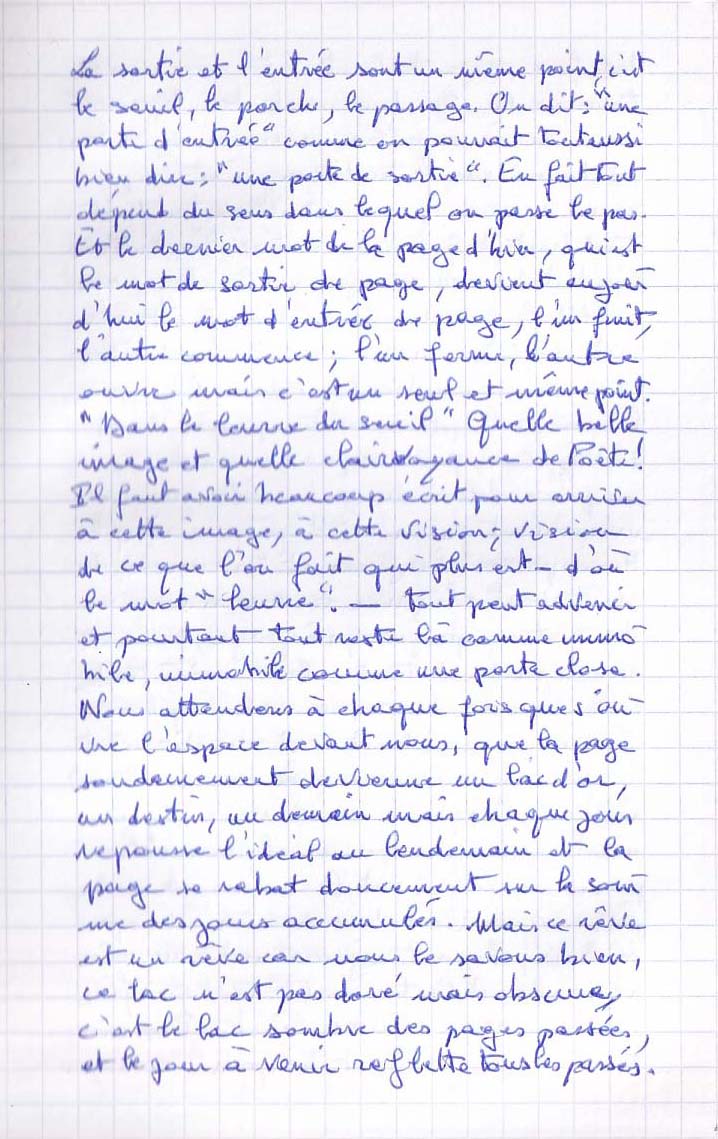 La sortie et l'entrée sont un même point, c'est
le seuil, le porche, le passage. On dit : "une
porte d'entrée" comme on pourrait tout aussi
bien dire : "une porte de sortie". En fait tout
dépend du sens dans lequel on passe le pas.
Et le dernier mot de la page d'hier, qui est
le mot de sortie de page, devient aujour
d'hui le mot d'entrée de page, l'un finit,
l'autre commence ; l'un ferme, l'autre
ouvre mais c'est un seul et même point.
"Dans le leurre du seuil" Quelle belle
image et quelle clairvoyance de Poète !
Il faut avoir beaucoup écrit pour arriver
à cette image, à cette vision ; vision
de ce que l'on fait qui plus est – d'où
le mot "leurre". — tout peut advenir
et pourtant tout reste là comme immo
bile, immobile comme une porte close.
Nous attendons à chaque fois que s'ou
vre l'espace devant nous, que la page
soudainement devienne un lac d'or,
un destin, un demain mais chaque jour
repousse l'idéal au lendemain et la
page se rabat doucement sur la som
me des jours accumulés. Mais ce rêve
est un rêve car nous le savons bien,
ce lac n'est pas doré mais obscur,
c'est le lac sombre des pages passées,
et le jour à venir reflette tous les passés.